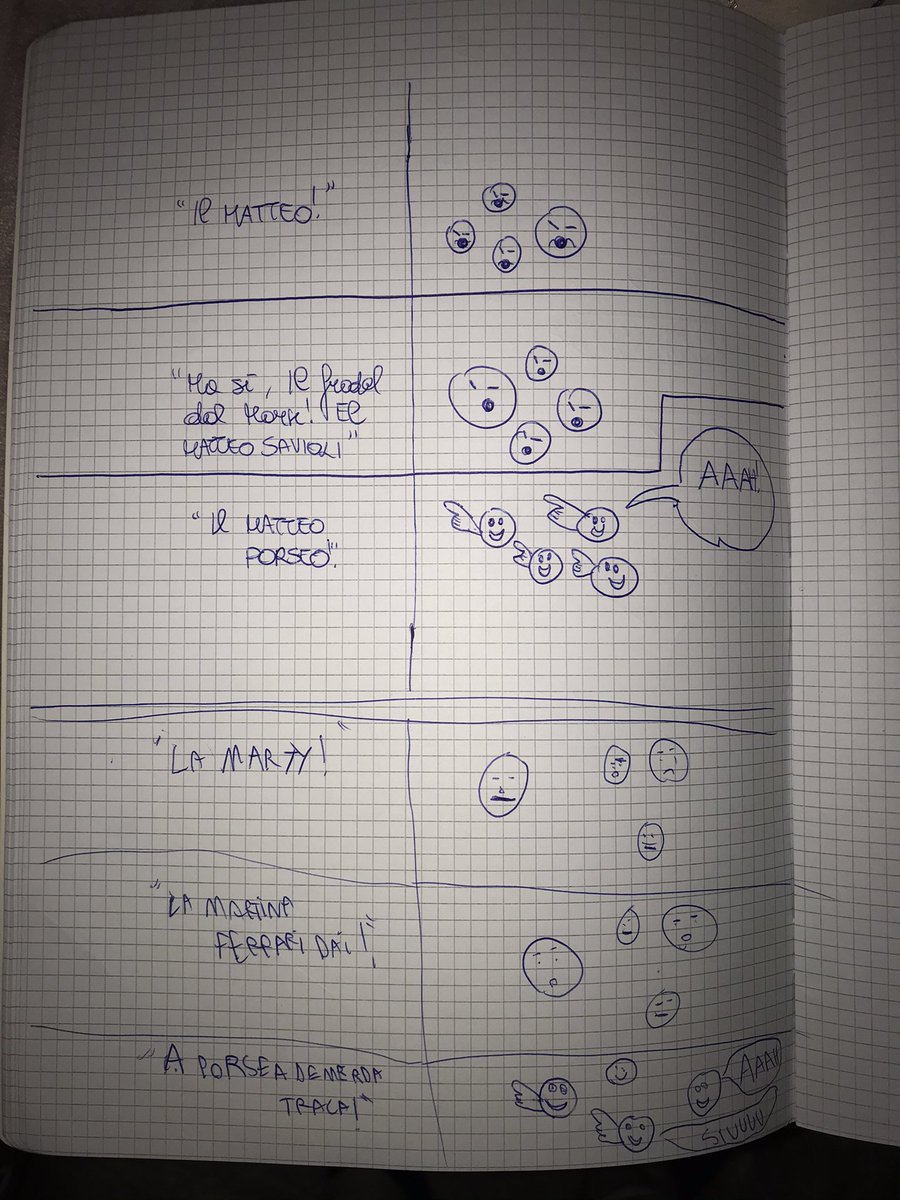 "Il MATTEO!"
"Ma sì, il fradel
dal Mork! El
MATTEO SAVIOLI"
"Il MATTEO
PORSEO!"
AAAH!
"LA MARTY!"
"LA MARTINA
FERRARI DAI!"
"A PORSEA DE MERDA
TRACA!"
AAAH
SIUUUU